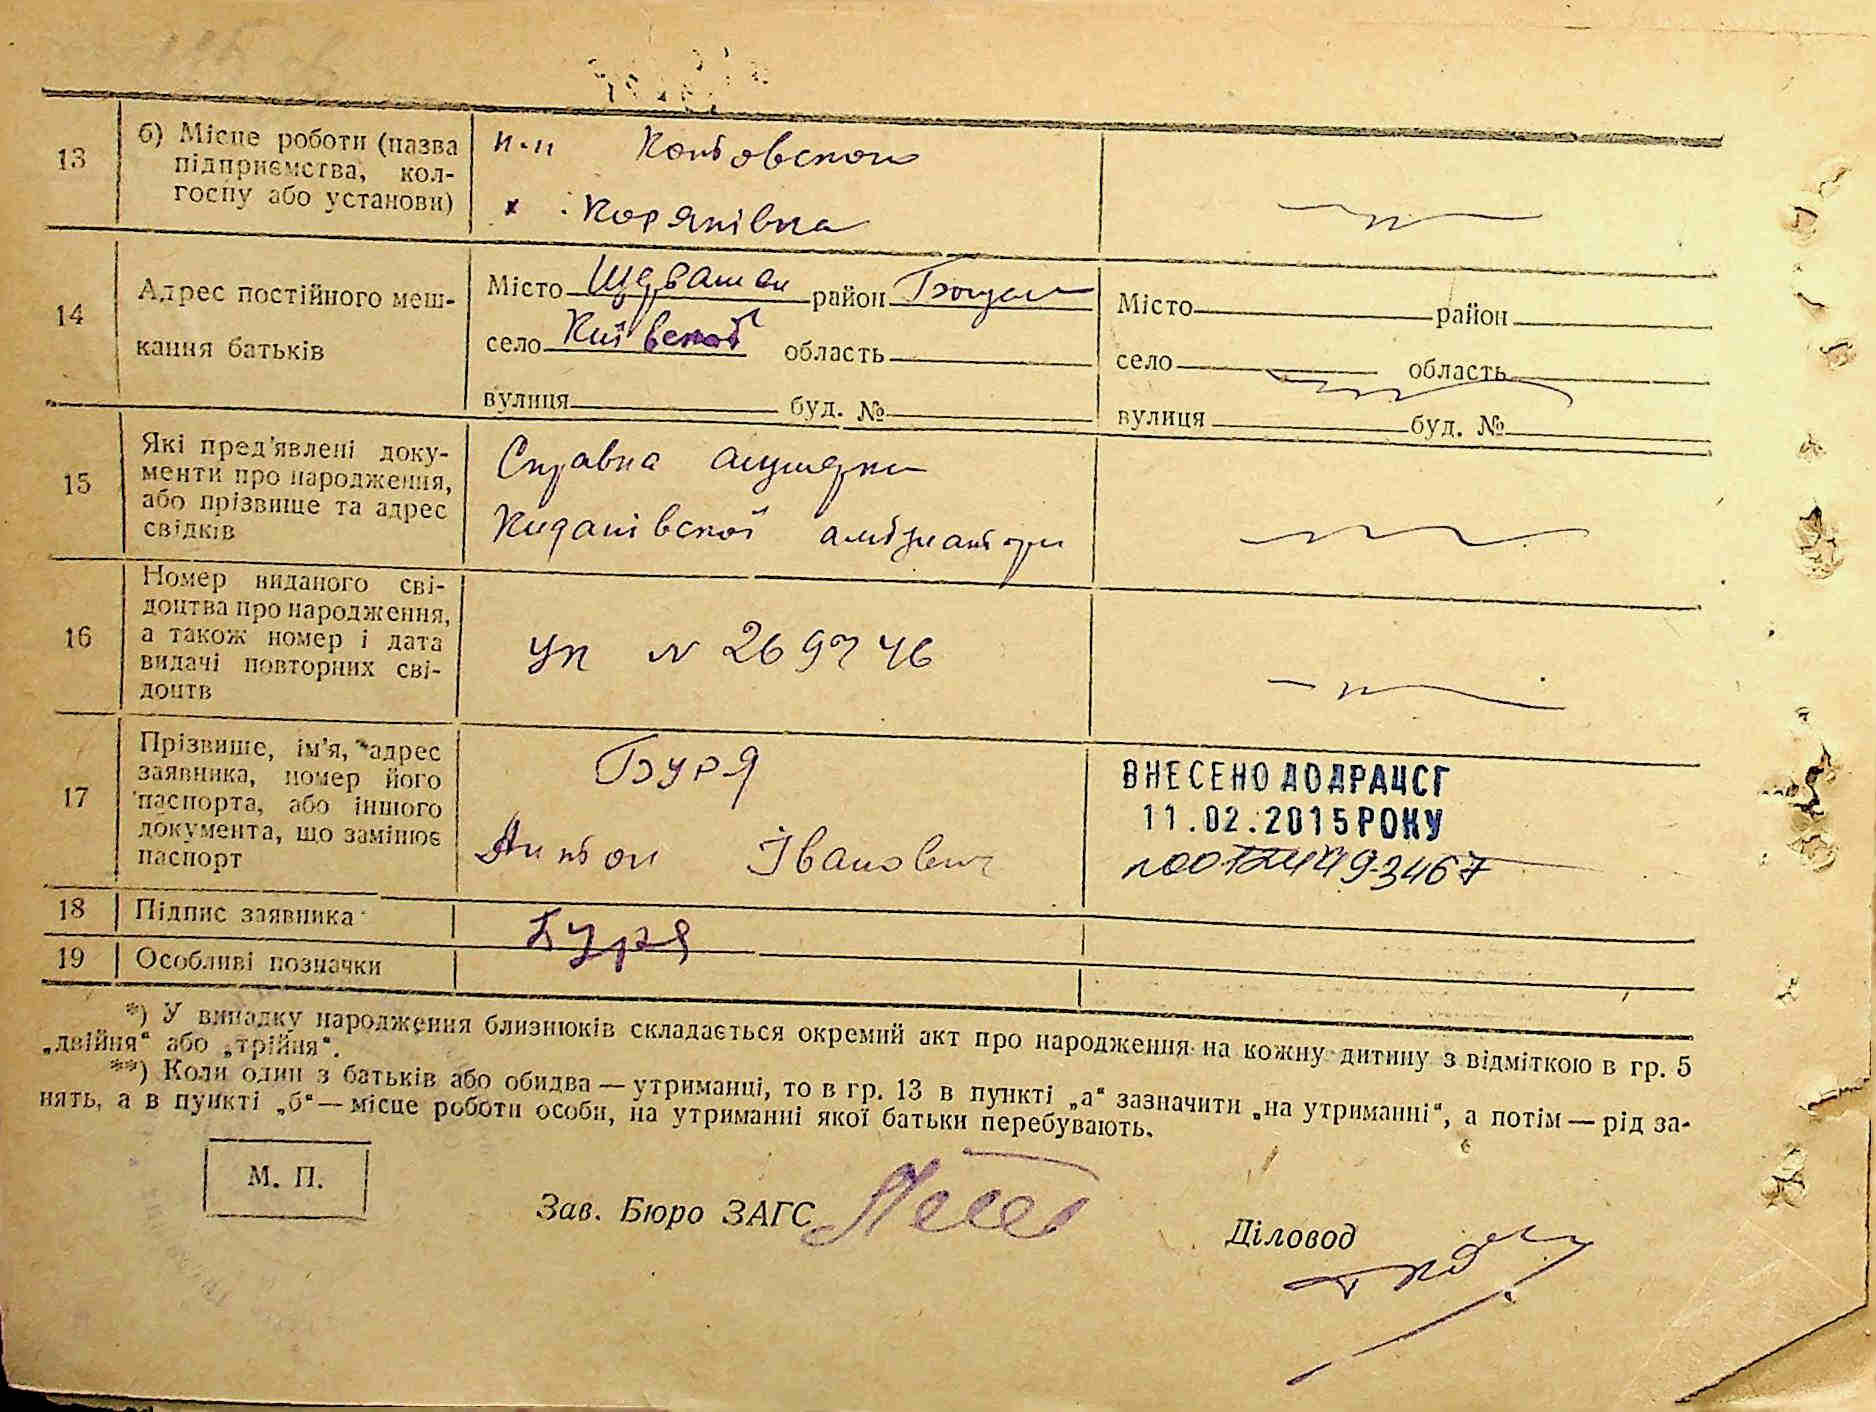 13
б) Місце роботи (назва
підприємства, кол-
госпу або установи)
к-п Котовского
х. Корянівка
14
Адрес постійного меш-
кання батьків
Місто район
село Київської область
вулиця буд. №
Місто район
село область
вулиця буд. №
15
Які пред'явлені доку-
менти про народження,
або прізвище та адрес
свідків
Справка акушерки
амбулаторії
16
Номер виданого сві-
доцтва про народження,
а також номер і дата
видачі повторних сві-
доцтв
УК № 269746
17
Прізвище, ім'я, адрес
заявника, номер його
паспорта, або іншого
документа, що замінює
паспорт
Буря
Антон Іванович
ВНЕСЕНО ДО ДРАЦСГ
11.02.2015 РОКУ
18
Підпис заявника
Буря
19
Особливі позначки
*) У випадку народження близнюків складається окремий акт про народження на кожну дитину з відміткою в гр. 5
„двійня“ або „трійня“.
**) Коли один з батьків або обидва — утриманці, то в гр. 13 в пункті „а“ зазначити „на утриманні“, а потім — рід за-
нять, а в пункті „б“ — місце роботи особи, на утриманні якої батьки перебувають.
М. П.
Зав. Бюро ЗАГС
Діловод